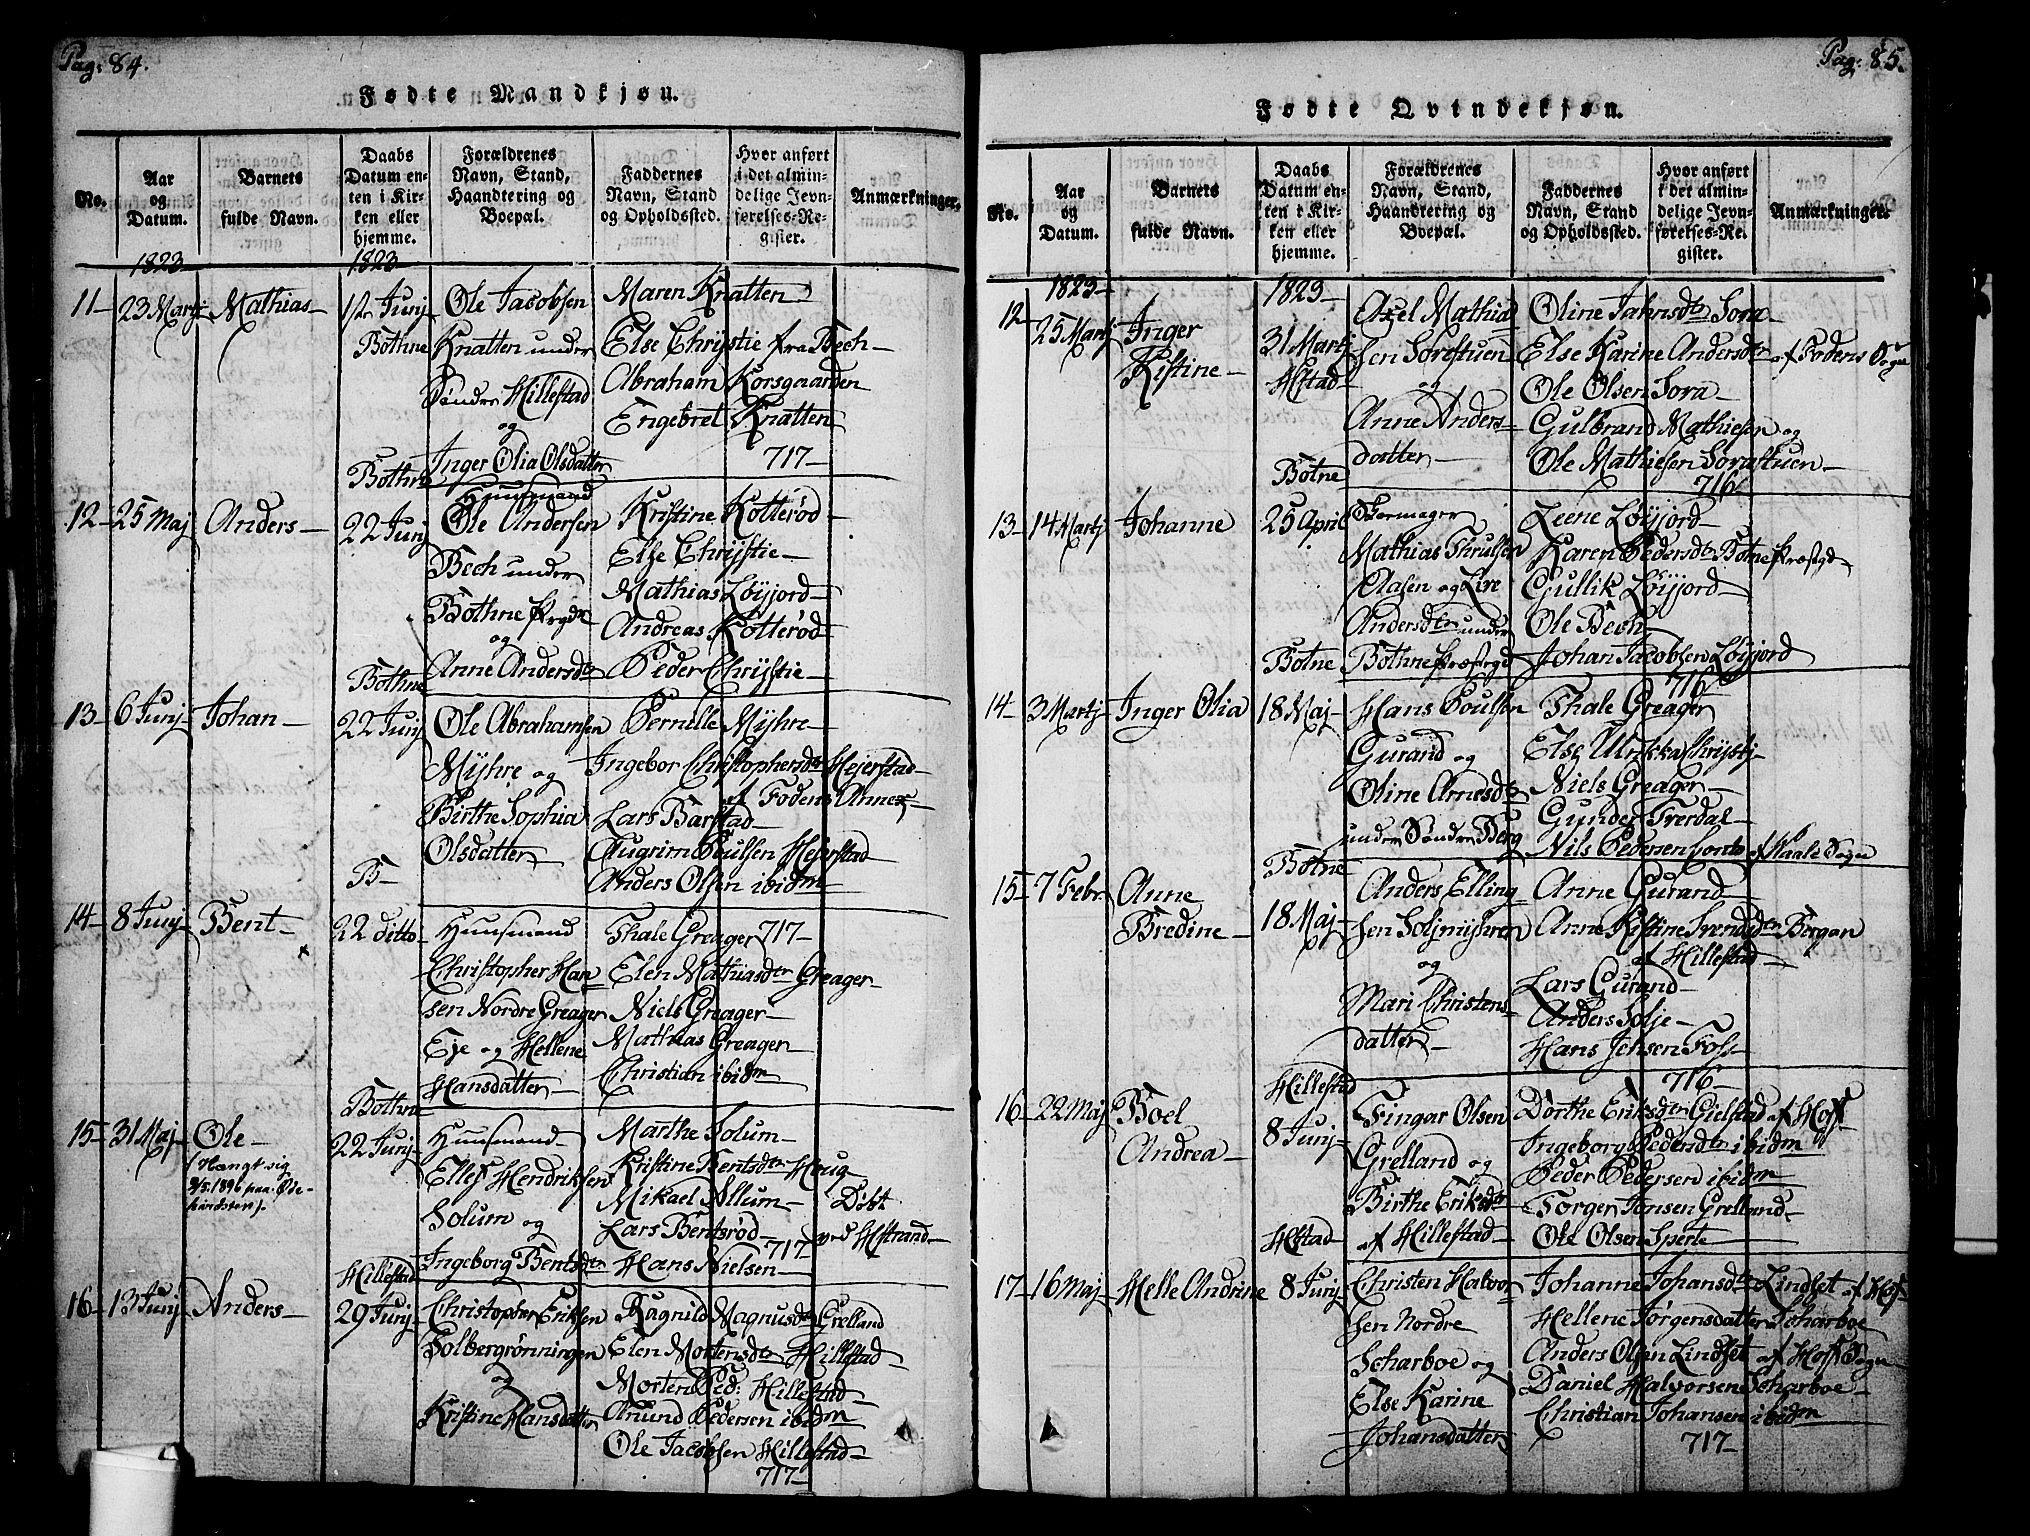 Pag: 84.
Fødte Mandkjøn.
No.
Aar og Datum.
Barnets fulde Navn.
Daabs Datum enten i Kirken eller hjemme.
Forældrenes Navn, Stand, Haandtering og Boepæl.
Faddernes Navn, Stand og Opholdssted.
Hvor anført i det almindelige Jevnførelses-Register.
Anmærkninger.
1823 1823
11 23 Martj Mathias 12 Junj Ole Jacobsen Maren Knatten
Bothne Knatten under Else Chrystie fra Bech
Søndre Hillestad Abraham Korsgaarden
og Engebret Knatten
Bothne Inger Olia Olsdatter 717
Huusmand
12 25 Maj Anders 22 Junj Ole Andersen Kristine Kotterød
Bech under Else Chrystie
Bothne Mathias Løyjord
og Andreas Kotterød
Bothne Anne Andersdtr Peder Chrystie
13 6 Junj Johan 22 Junj Ole Abrahamsen Pernille Myhre
Myhre og Ingebor Christophersdtr Hejerstad
af Fodens Annex
Birthe Sophia Lars Barstad
Olsdatter Augrim Poulsen Hejerstad
B Anders Olsen ibidm
14 8 Junj Bent 22 ditto Huusmand Thale Greager 717
Christopher Han Elen Mathiasdtr Greager
sen Nordre Greager Niels Greager
Eje og Hellene Mathias Greager
Hansdatter Christian ibidm
Bothne
15 31 Maj Ole 22 Junj Huusmand Marthe Solum
(Hængt sig Ellef Hendriksen Kristine Bentsdtr Houg
1896 paa Øde- Mikael Allum Døbt
Solum og Lars Bentsrød ved Hfstrand
717
Ingeborg Bentsdtr Hans Nielsen
Hillestad
16 13 Junj Anders 29 Junj Christopher Eriksen Ragnild Magnusdtr Grelland
Solbergrønningen Elen Mortensdtr Hillestad
og Morten Ped: Hillestad
Kristine Hansdatter Anund Pedersen ibidm
Ole Jacobsen Hillestad
717
Pag: 85.
Fødte Qvindekjøn.
No.
Aar og Datum.
Barnets fulde Navn.
Daabs Datum enten i Kirken eller hjemme.
Forældrenes Navn, Stand, Haandtering og Boepæl.
Faddernes Navn, Stand og Opholdssted.
Hvor anført i det almindelige Jevnførelses-Register.
Anmærkninger.
1823 1823
12 25 Martj Inger 31 Martj Axel Mathia Oline Jahnsdtr Sora
Kistine Hstad sen Sorestuen Else Karine Andersdtr af Fodens Sogn
og Ole Olsen Sora
Anne Anders Gulbrand Mathiesen og
Botne datter Ole Mathiesen Sorastuen
716
13 14 Martj Johanne 25 April Skormager Leene Løyjord
Mathias Thrulsen Karen Pedersdtr Botne Præstgd
Aasen og Lire Gullik Løyjord
Andersdtr under Ole Bech
Botne Bothne Præstegd Johan Jacobsen Løyjord
716
14 3 Martj Inger Olia 18 Maj Hans Poulsen Thale Greager
Gurand og Else Ulrikka Chrystj
Oline Arnesdtr Niels Greager
under Søndre Berg Gunder Trerdal
Botne Nils Pedersen af Vaale Sogn
15 7 Febr. Anne Anders Elling Anne Gurand
Bredine 18 Maj sen Soljmyhren Anne Kistine Svendsdtr Bergan
og af Hillestad
Mari Christens Lars Gurand
datter Anders Solje
Hans Jensen Foss
Hillestad 716
16 22 Maj Boel 8 Junj Fingar Olsen Dorthe Eriksdtr Gielstad af Hoff
Andrea Grelland og Ingeborg Pedersdtr ibidm
Birthe Eriksdtr Peder Pedersen ibidm
Hstad af Hillestad Torger Jonsen Grelland
Ole Olsen Sperle
17 16 Maj Helle Andrine 8 Junj Christen Halvor Johanne Johansdtr Lindset af Hof
sen Nordre Hellene Jørgensdatter Scharboe
Scharboe og Anders Olsen Lindset af Hoff Sogn
Else Karine Daniel Halvorsen Scharboe
Johansdatter Christian Johansen ibidm
717